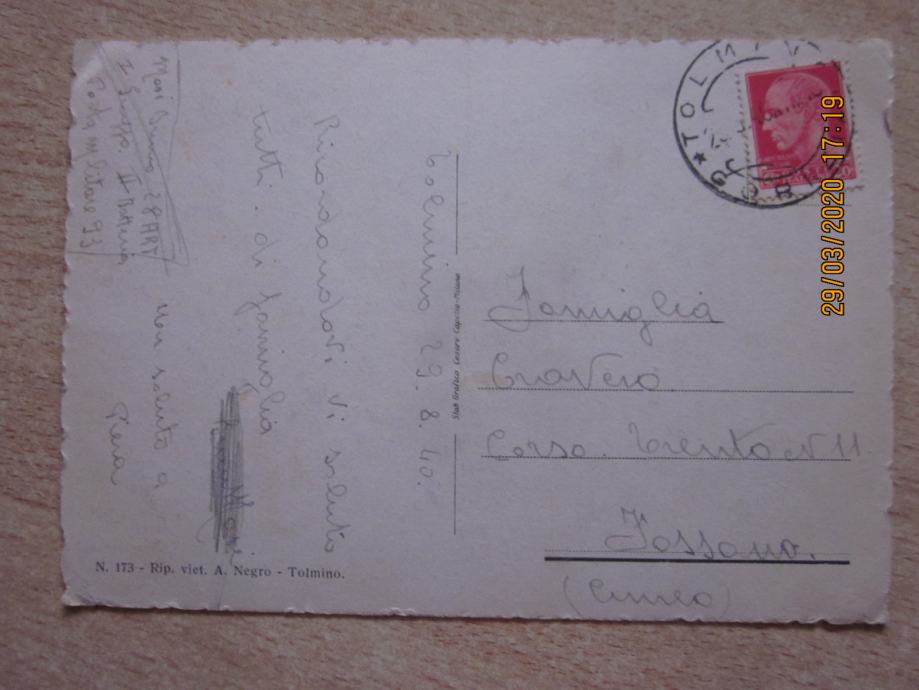 Tolmino 29. 8. 40.
Ricordandovi vi saluto
tutti di famiglia
un saluto a
Piera
28 ART
II Batteria
Posta Militare 93
Famiglia
Cravero
Corso. Trento N 11.
Fossano.
(Cuneo)
Stab Grafico Cesare Capello-Milano
N. 173 - Rip. viet. A. Negro - Tolmino.
TOLMIN
29/03/2020 17:19